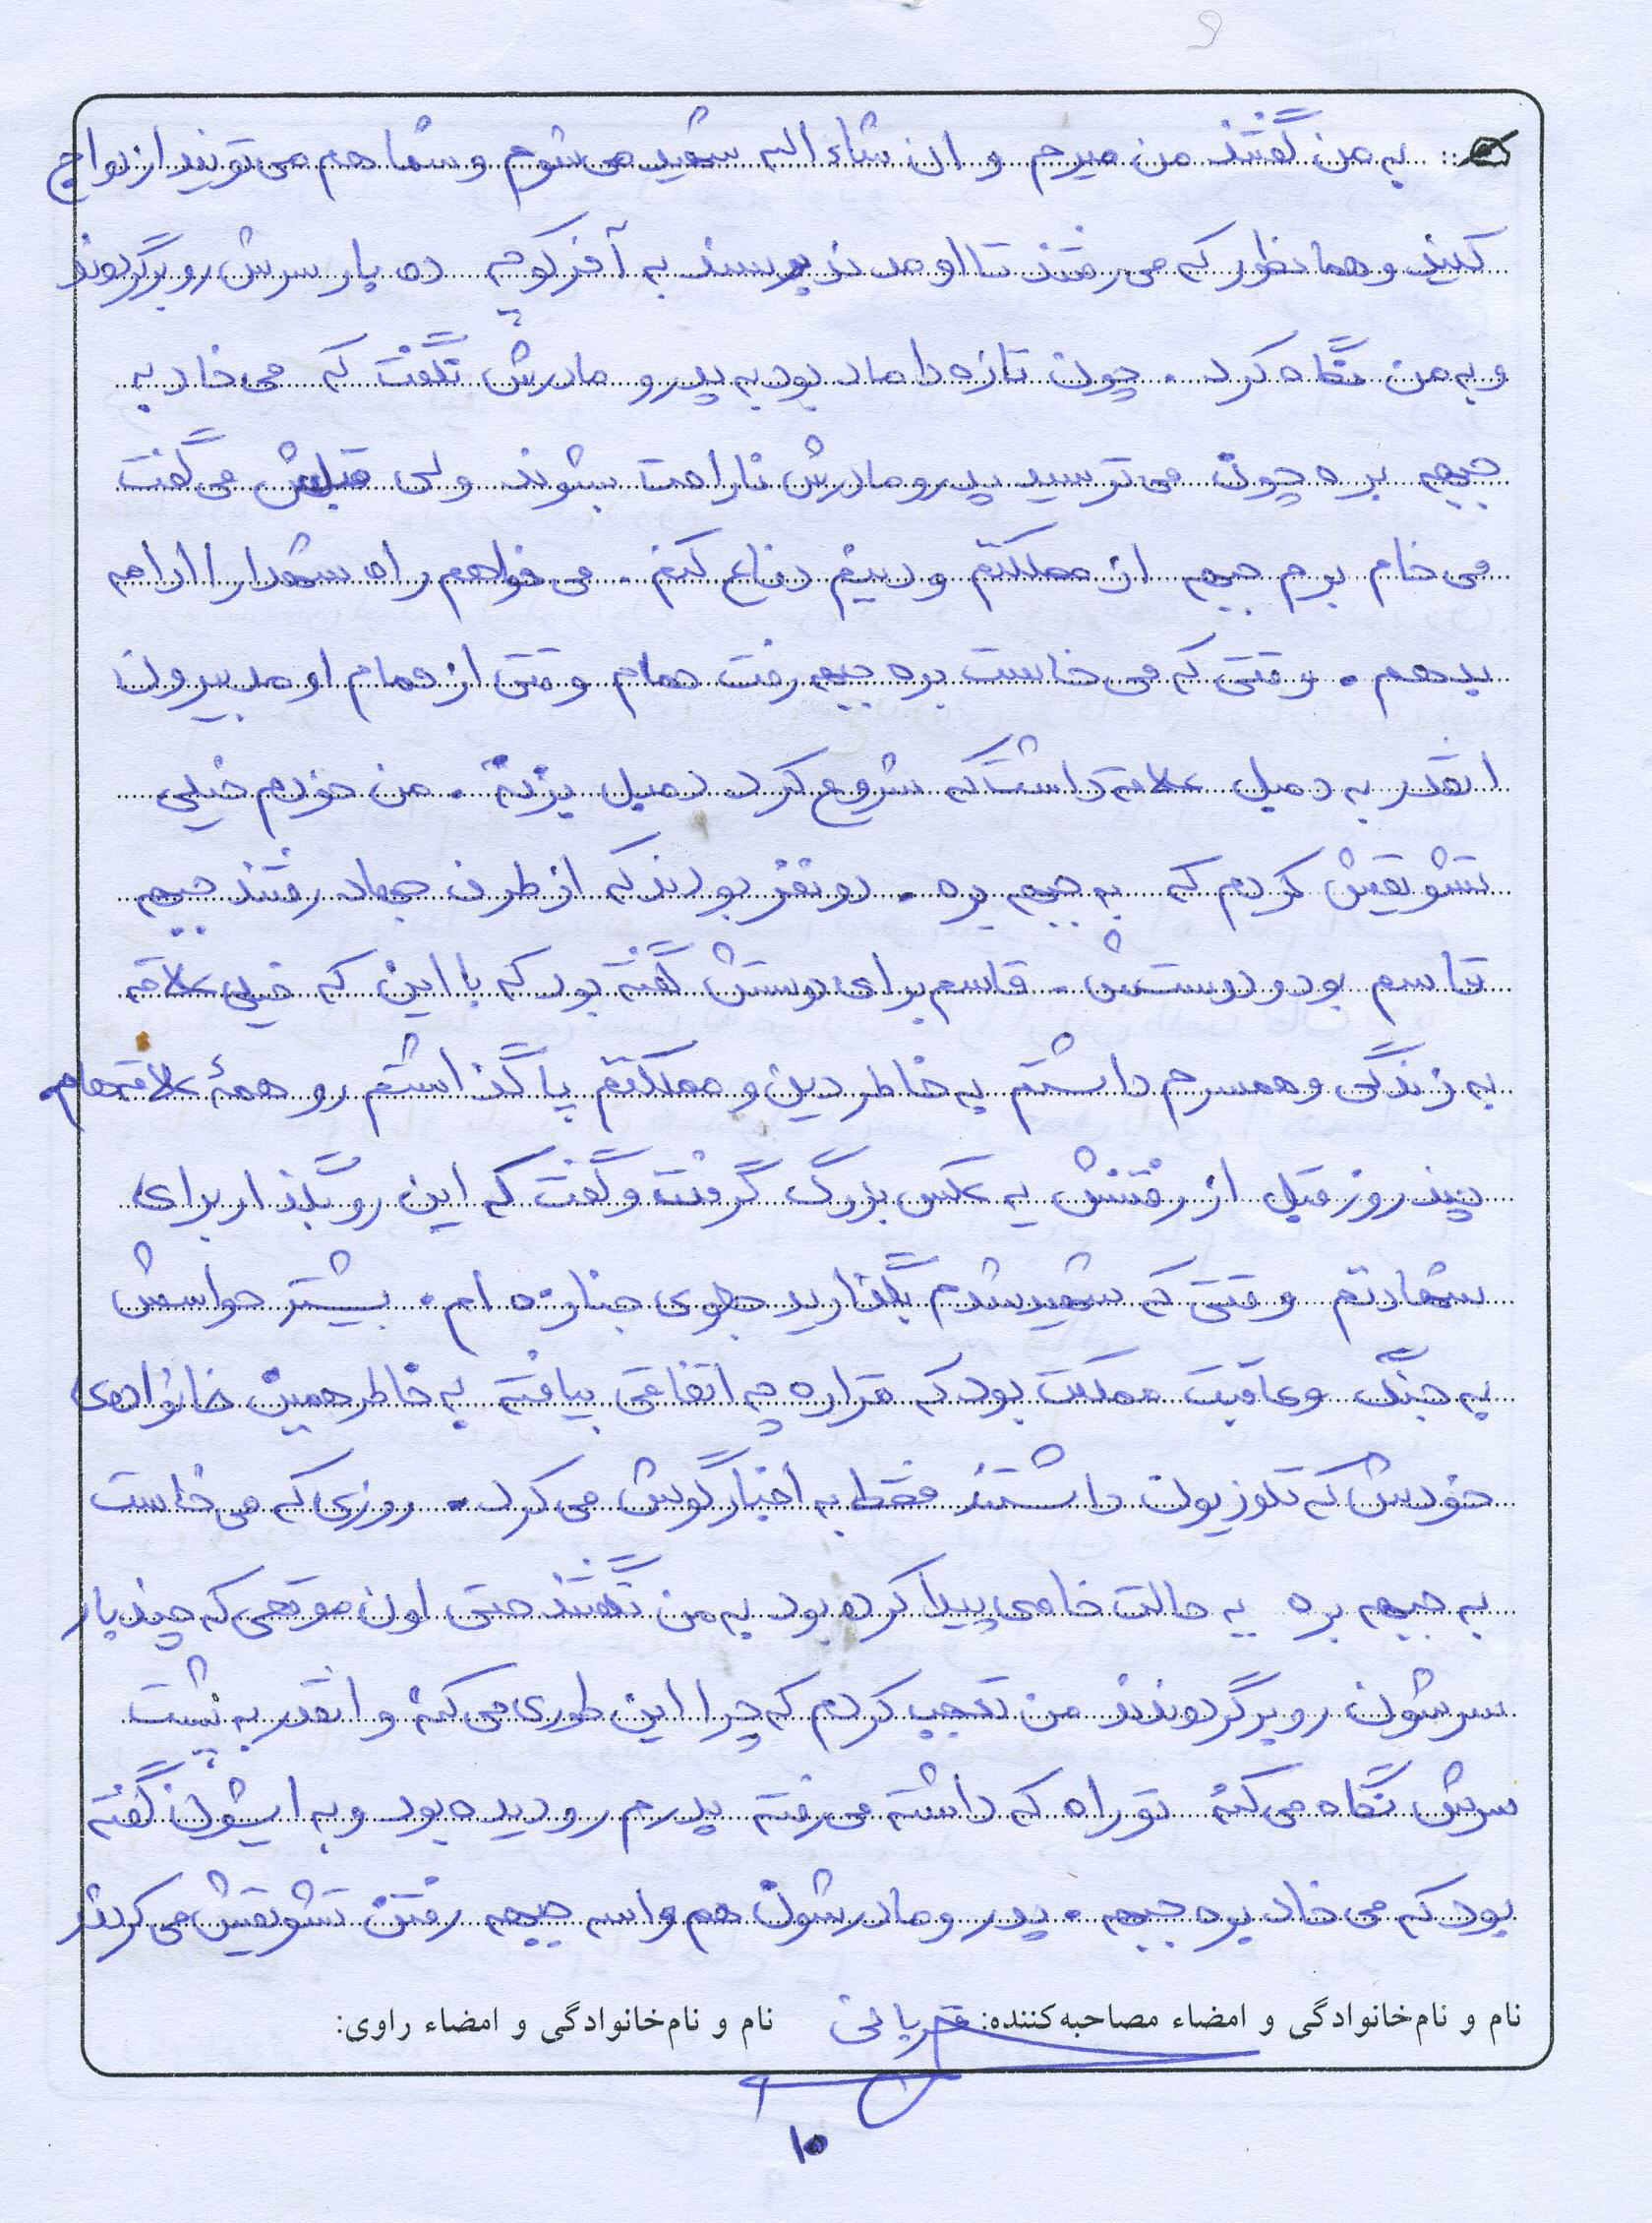 به من گفتند من میرم و ان شاء اله شهید می شوم و شما هم می تونید ازدواج
کنید و همانطور که می رفتند تا اومدند برسند به آخر کوچه ده بار سرش رو برگردوند
و به من نگاه کرد . چون تازه داماد بود به پدر و مادرش نگفت که می خاد به
جبهه بره چون می ترسید پدر و مادرش ناراحت بشوند ولی قبلش می گفت
می خام برم جبهه از مملکتم و دینم دفاع کنم . می خواهم راه شهدا را ادامه
بدهم . وقتی که می خاست بره جبهه رفت حمام وقتی از حمام اومد بیرون
انقدر به دمبل علاقه داشت که شروع کرد دمبل بزنه . من خودم خیلی
تشویقش کردم که به جبهه بره . دو نفر بودند که از طرف جهاد رفتند جبهه
قاسم بود و دوستش . قاسم برای دوستش گفته بود که با این که خیلی علاقه
به زندگی و همسرم داشتم به خاطر دین و مملکتم پا گذاشتم رو همهٔ علاقه هام .
چند روز قبل از رفتنش یه عکس بزرگ گرفت و گفت که این رو بگذار برای
شهادتم وقتی که شهید شدم بگذارید جلوی جنازه ام . بیشتر حواسش
به جنگ و عاقبت مملکت بود که قراره چه اتفاقی بیافته به خاطر همین خانواده ی
خودش که تلوزیون داشتند فقط به اخبار گوش می کرد . روزی که می خاست
به جبهه بره یه حالت خاصی پیدا کرده بود به من نگفتند حتی اون موقعی که چند بار
سرشون رو برگردوندند من تعجب کردم که چرا این طوری می کنه و انقدر به پشت
سرش نگاه می کنه تو راه که داشته می رفته پدرم رو دیده بود و به ایشون گفته
بود که می خاد بره جبهه . پدر و مادرشون هم واسه جبهه رفتن تشویقش می کردند
نام و نام‌خانوادگی و امضاء مصاحبه‌کننده: قربانی نام و نام‌خانوادگی و امضاء راوی:
۱۰